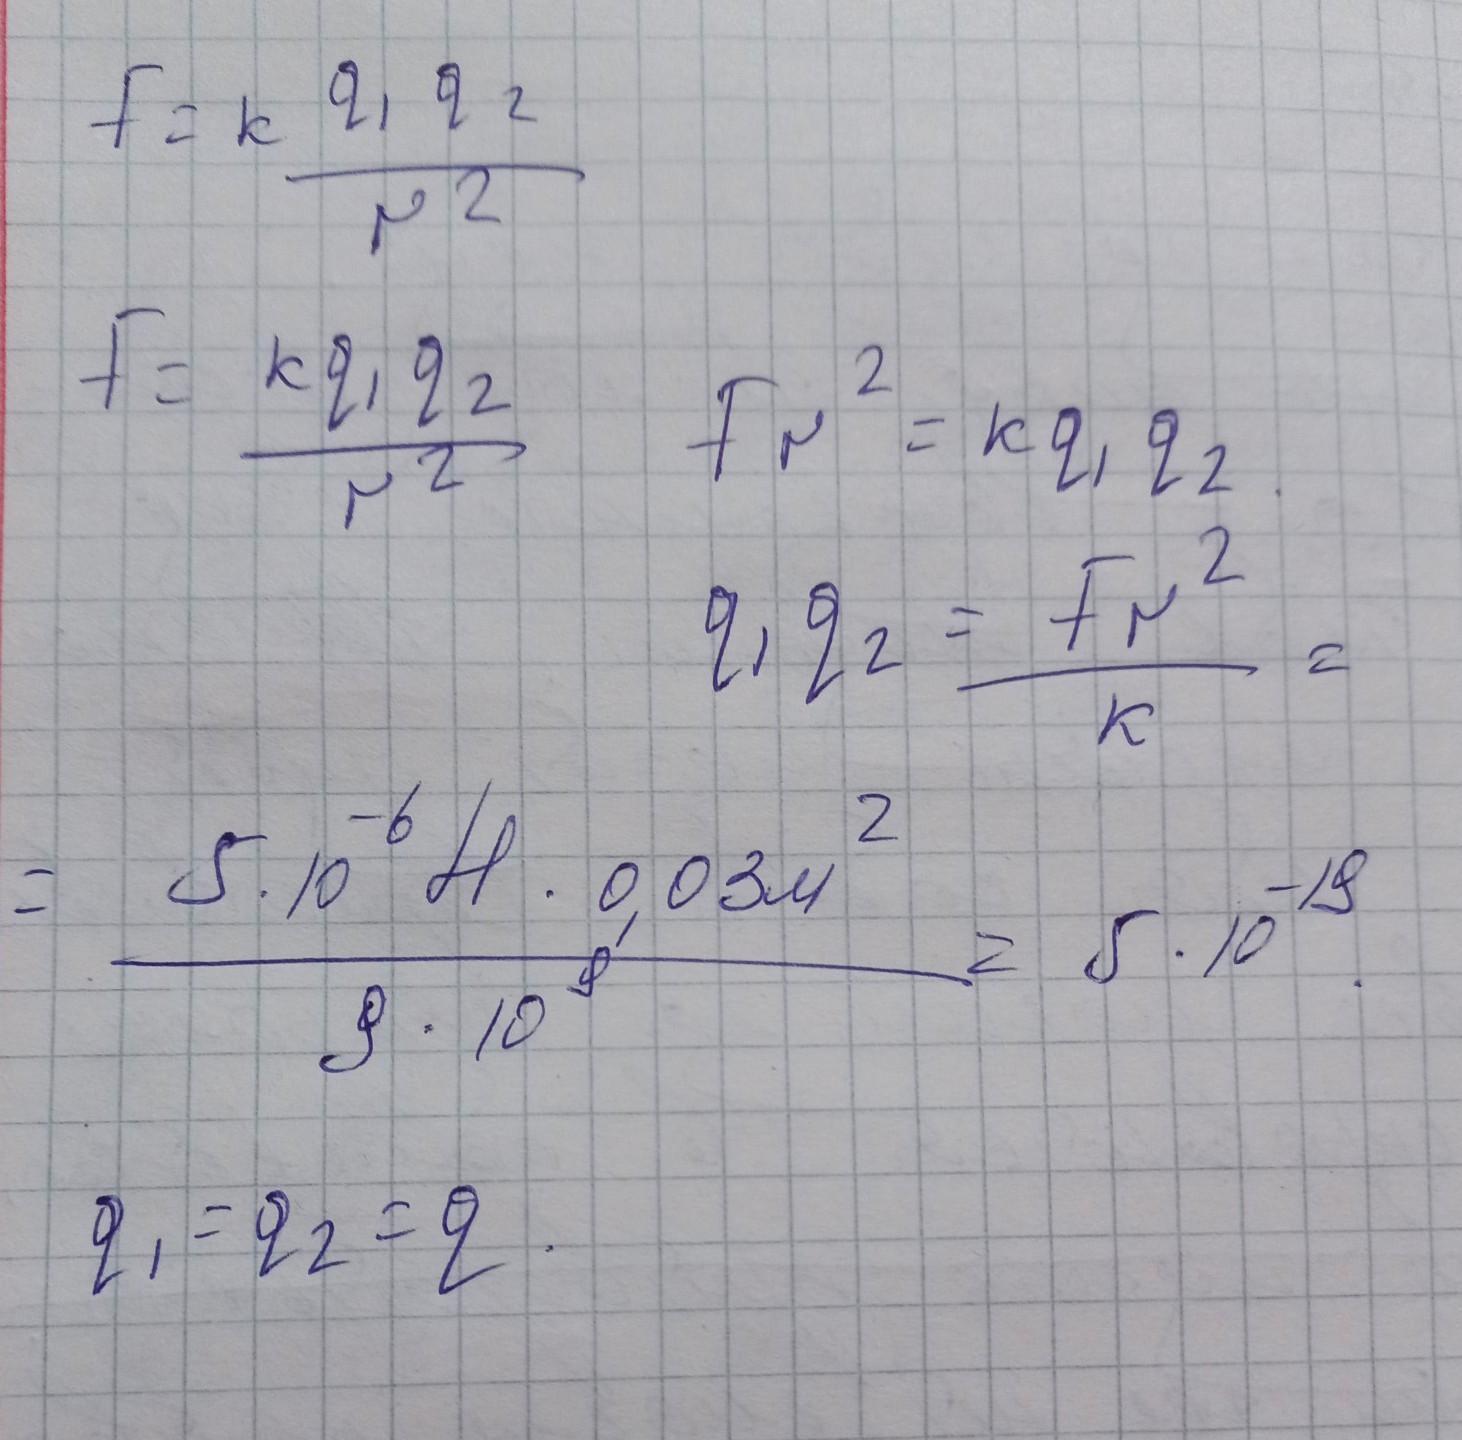 F = k q₁ q₂ / r²
F = k q₁ q₂ / r²   F r² = k q₁ q₂.
q₁ q₂ = F r² / k =
= 5 · 10⁻⁶ Н · 0,03м² / 9 · 10⁹ = 5 · 10⁻¹⁹.
q₁ = q₂ = q.